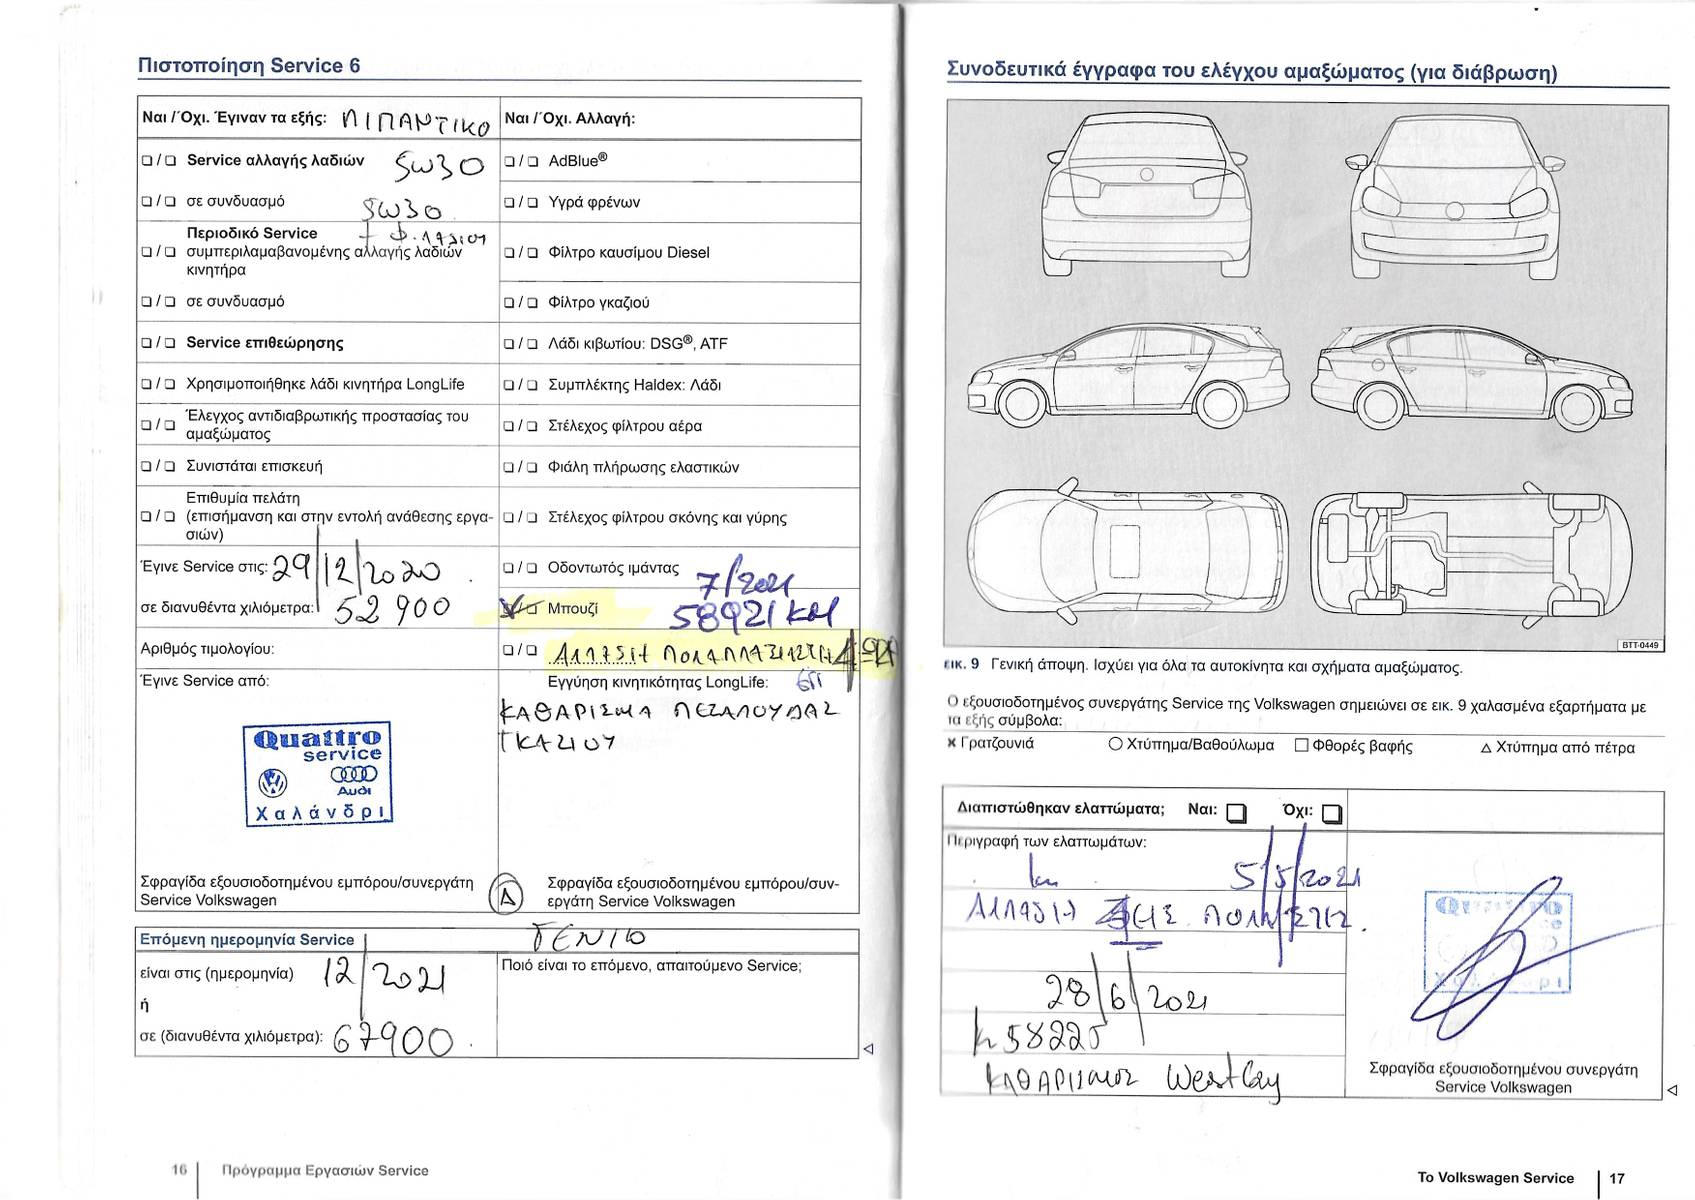 Πιστοποίηση Service 6
Ναι /Όχι. Έγιναν τα εξής: ΛΙΠΑΝΤΙΚΟ
❏ / ❏ Service αλλαγής λαδιών 5W30
❏ / ❏ σε συνδυασμό 5W30
Περιοδικό Service + Φ. ΛΑΔΙΟΥ
❏ / ❏ συμπεριλαμαβανομένης αλλαγής λαδιών
κινητήρα
❏ / ❏ σε συνδυασμό
❏ / ❏ Service επιθεώρησης
❏ / ❏ Χρησιμοποιήθηκε λάδι κινητήρα LongLife
❏ / ❏ Έλεγχος αντιδιαβρωτικής προστασίας του
αμαξώματος
❏ / ❏ Συνιστάται επισκευή
Επιθυμία πελάτη
❏ / ❏ (επισήμανση και στην εντολή ανάθεσης εργα-
σιών)
Έγινε Service στις: 29/12/2020
σε διανυθέντα χιλιόμετρα: 52900
Αριθμός τιμολογίου:
Έγινε Service από:
Quattro
service
Audi
Χαλάνδρι
Σφραγίδα εξουσιοδοτημένου εμπόρου/συνεργάτη
Service Volkswagen
Ναι /Όχι. Αλλαγή:
❏ / ❏ AdBlue®
❏ / ❏ Υγρά φρένων
❏ / ❏ Φίλτρο καυσίμου Diesel
❏ / ❏ Φίλτρο γκαζιού
❏ / ❏ Λάδι κιβωτίου: DSG®, ATF
❏ / ❏ Συμπλέκτης Haldex: Λάδι
❏ / ❏ Στέλεχος φίλτρου αέρα
❏ / ❏ Φιάλη πλήρωσης ελαστικών
❏ / ❏ Στέλεχος φίλτρου σκόνης και γύρης
❏ / ❏ Οδοντωτός ιμάντας 7/2021
❏ / ❏ Μπουζί 58921 KM
❏ / ❏ ΑΛΛΑΓΗ
Εγγύηση κινητικότητας LongLife:
ΚΑΘΑΡΙΣΜΑ ΠΕΤΑΛΟΥΔΑΣ
ΓΚΑΖΙΟΥ
Σφραγίδα εξουσιοδοτημένου εμπόρου/συν-
εργάτη Service Volkswagen
Επόμενη ημερομηνία Service
είναι στις (ημερομηνία) 12/2021
ή
σε (διανυθέντα χιλιόμετρα): 67900
Ποιό είναι το επόμενο, απαιτούμενο Service;
16 Πρόγραμμα Εργασιών Service
Συνοδευτικά έγγραφα του ελέγχου αμαξώματος (για διάβρωση)
BTT-0449
εικ. 9 Γενική άποψη. Ισχύει για όλα τα αυτοκίνητα και σχήματα αμαξώματος.
Ο εξουσιοδοτημένος συνεργάτης Service της Volkswagen σημειώνει σε εικ. 9 χαλασμένα εξαρτήματα με
τα εξής σύμβολα:
× Γρατζουνιά ○ Χτύπημα/Βαθούλωμα □ Φθορές βαφής △ Χτύπημα από πέτρα
Διαπιστώθηκαν ελαττώματα; Ναι: ❏ Όχι: ❏
Περιγραφή των ελαττωμάτων:
km 5/5/2021
ΑΛΛΑΓΗ
28/6/2021
58225
ΚΑΘΑΡΙΣΜΟΣ
Σφραγίδα εξουσιοδοτημένου συνεργάτη
Service Volkswagen
Το Volkswagen Service 17